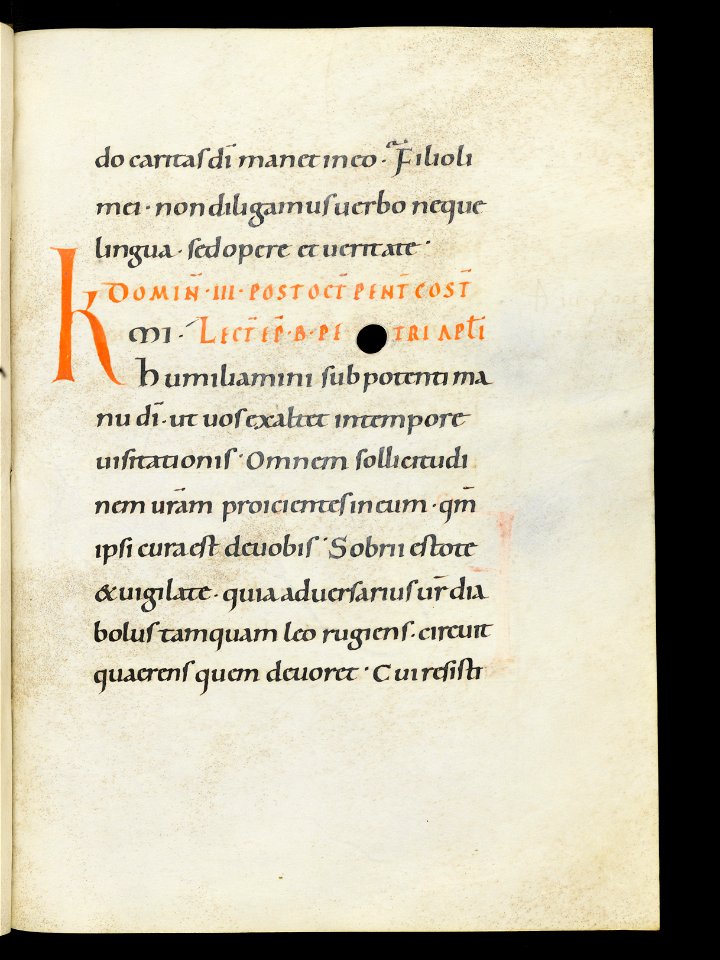 do caritas dī manet in eo · Filioli
mei · non diligamus uerbo neque
lingua · sed opere et ueritate ·
DOMIN̄ · III · POST OCT̄ PENT̄ COST̄
K̄mi · LECT̄ EP̄ · B · PE TRI APŁI
humiliamini sub potenti ma
nu dī · ut uos exaltet in tempore
uisitationis · Omnem sollicitudi
nem ur̄am proicientes in eum · qm̄
ipsi cura est de uobis · Sobrii estote
& uigilate · quia aduersarius ur̄ dia
bolus tamquam leo rugiens · circuit
quaerens quem deuoret · Cui resisti